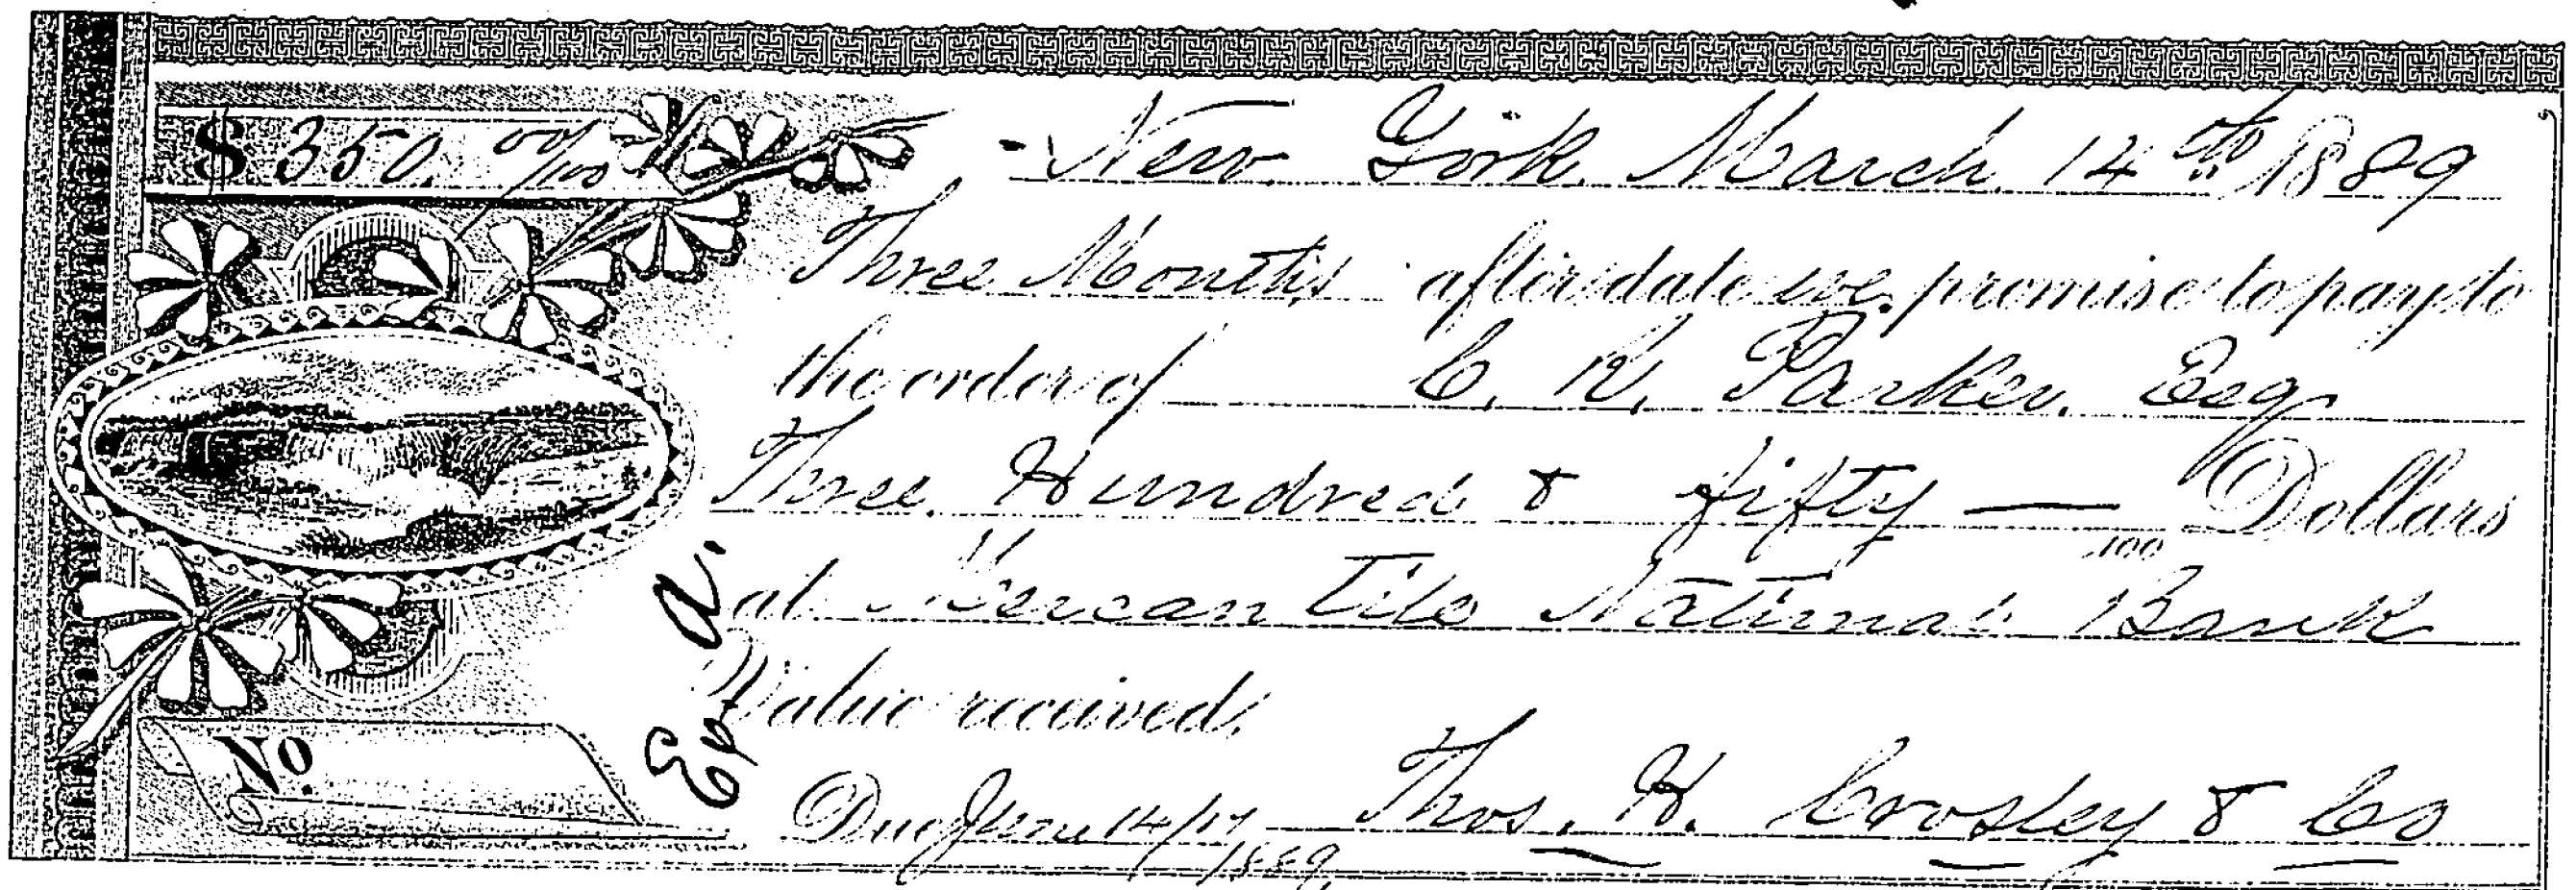 $ 350. 00/100
New York, March 14th 1889
Three Months after date we promise to pay to
the order of C. R. Parker, Esq
Three Hundred & fifty — Dollars
100
at Mercantile National Bank
Value received,
No.
Due June 14/17 Thos. H. Crosley & Co
1889
Ex A.